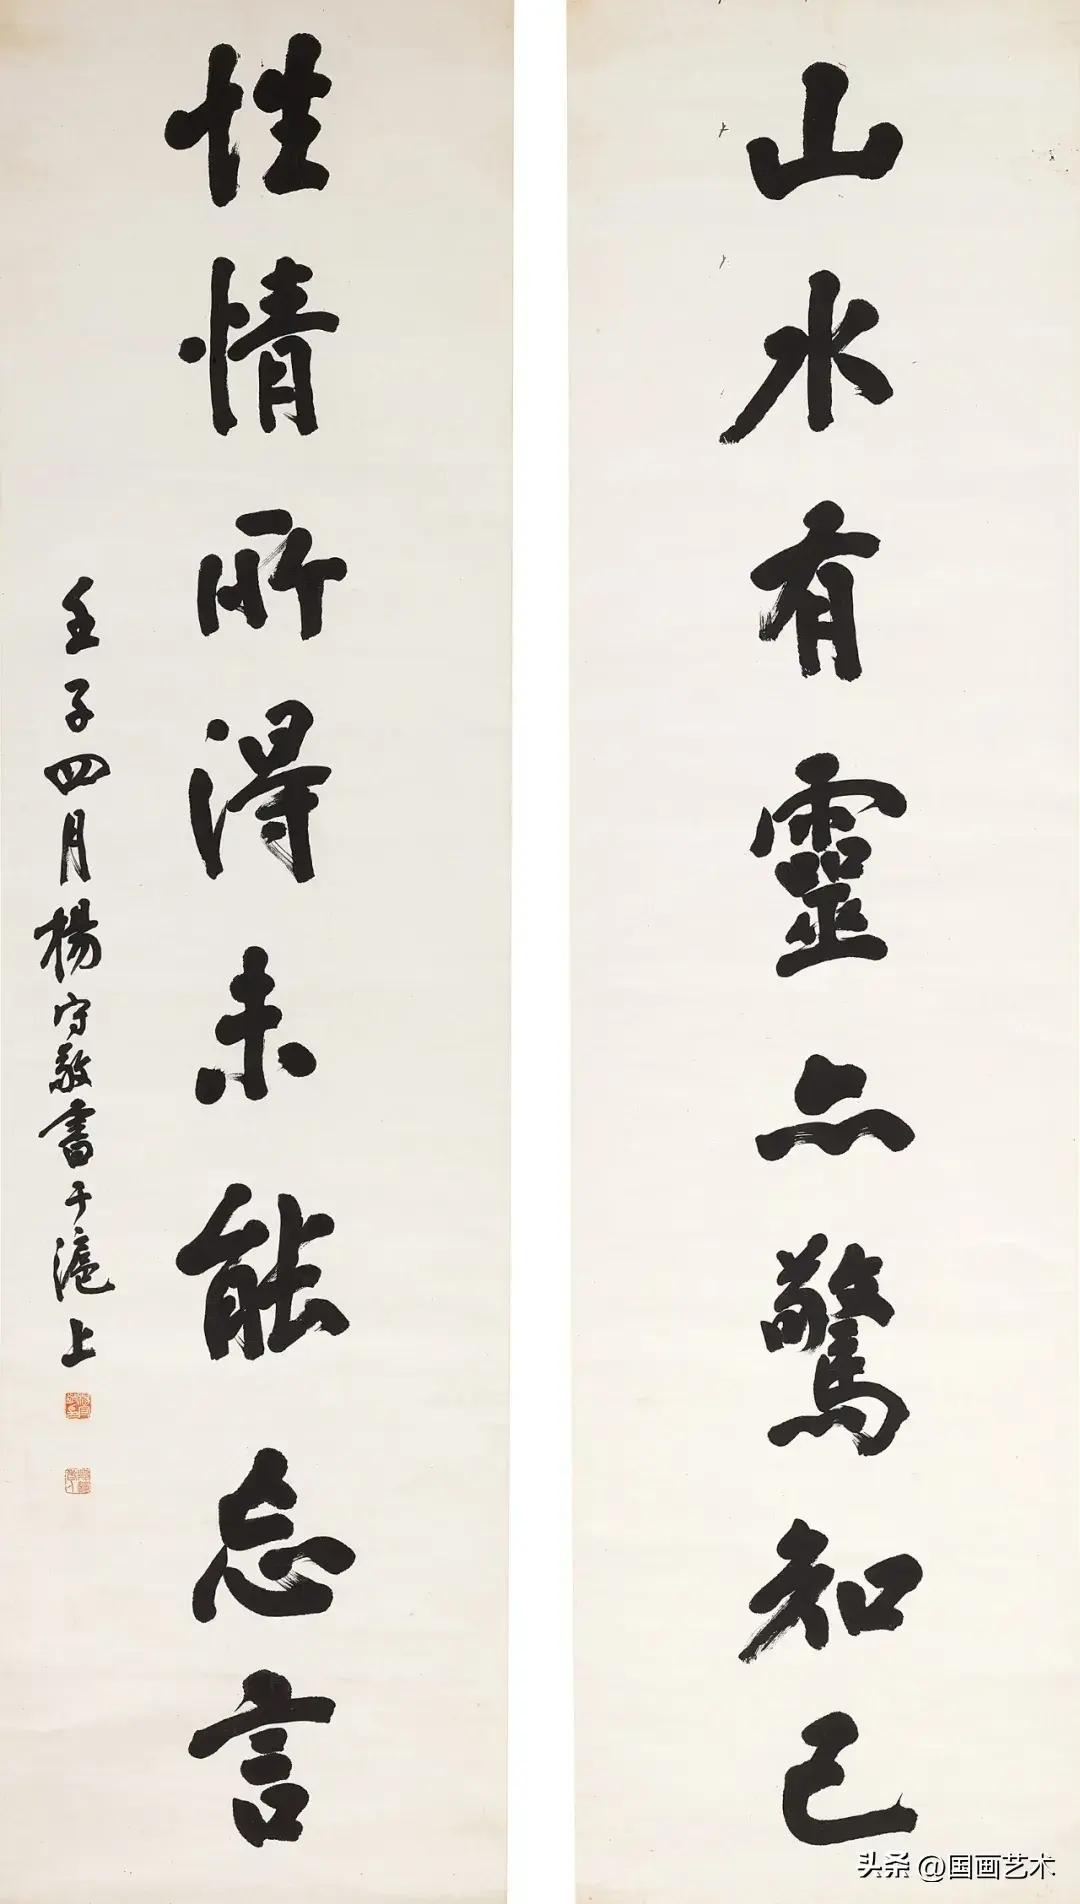 山水有靈亦驚知己
性情所得未能忘言
壬子四月楊守敬書于滬上
头条 @国画艺术